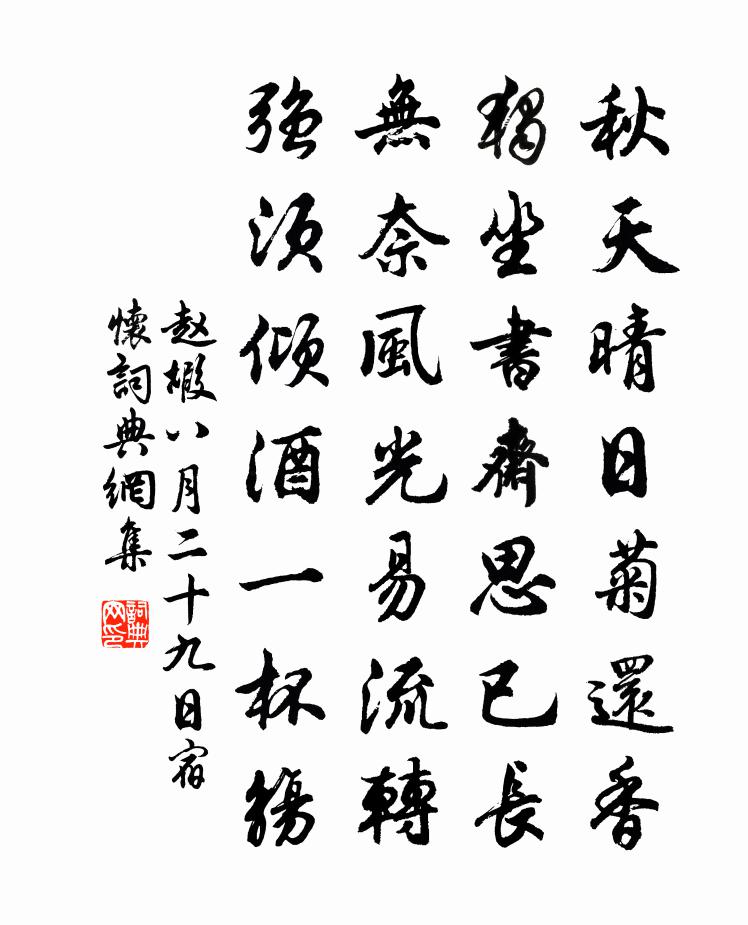 秋天晴日菊還香
獨坐書齋思已長
無奈風光易流轉
強須傾酒一杯觴
赵嘏八月二十九日宿
懷詞典網集
詞典
网印